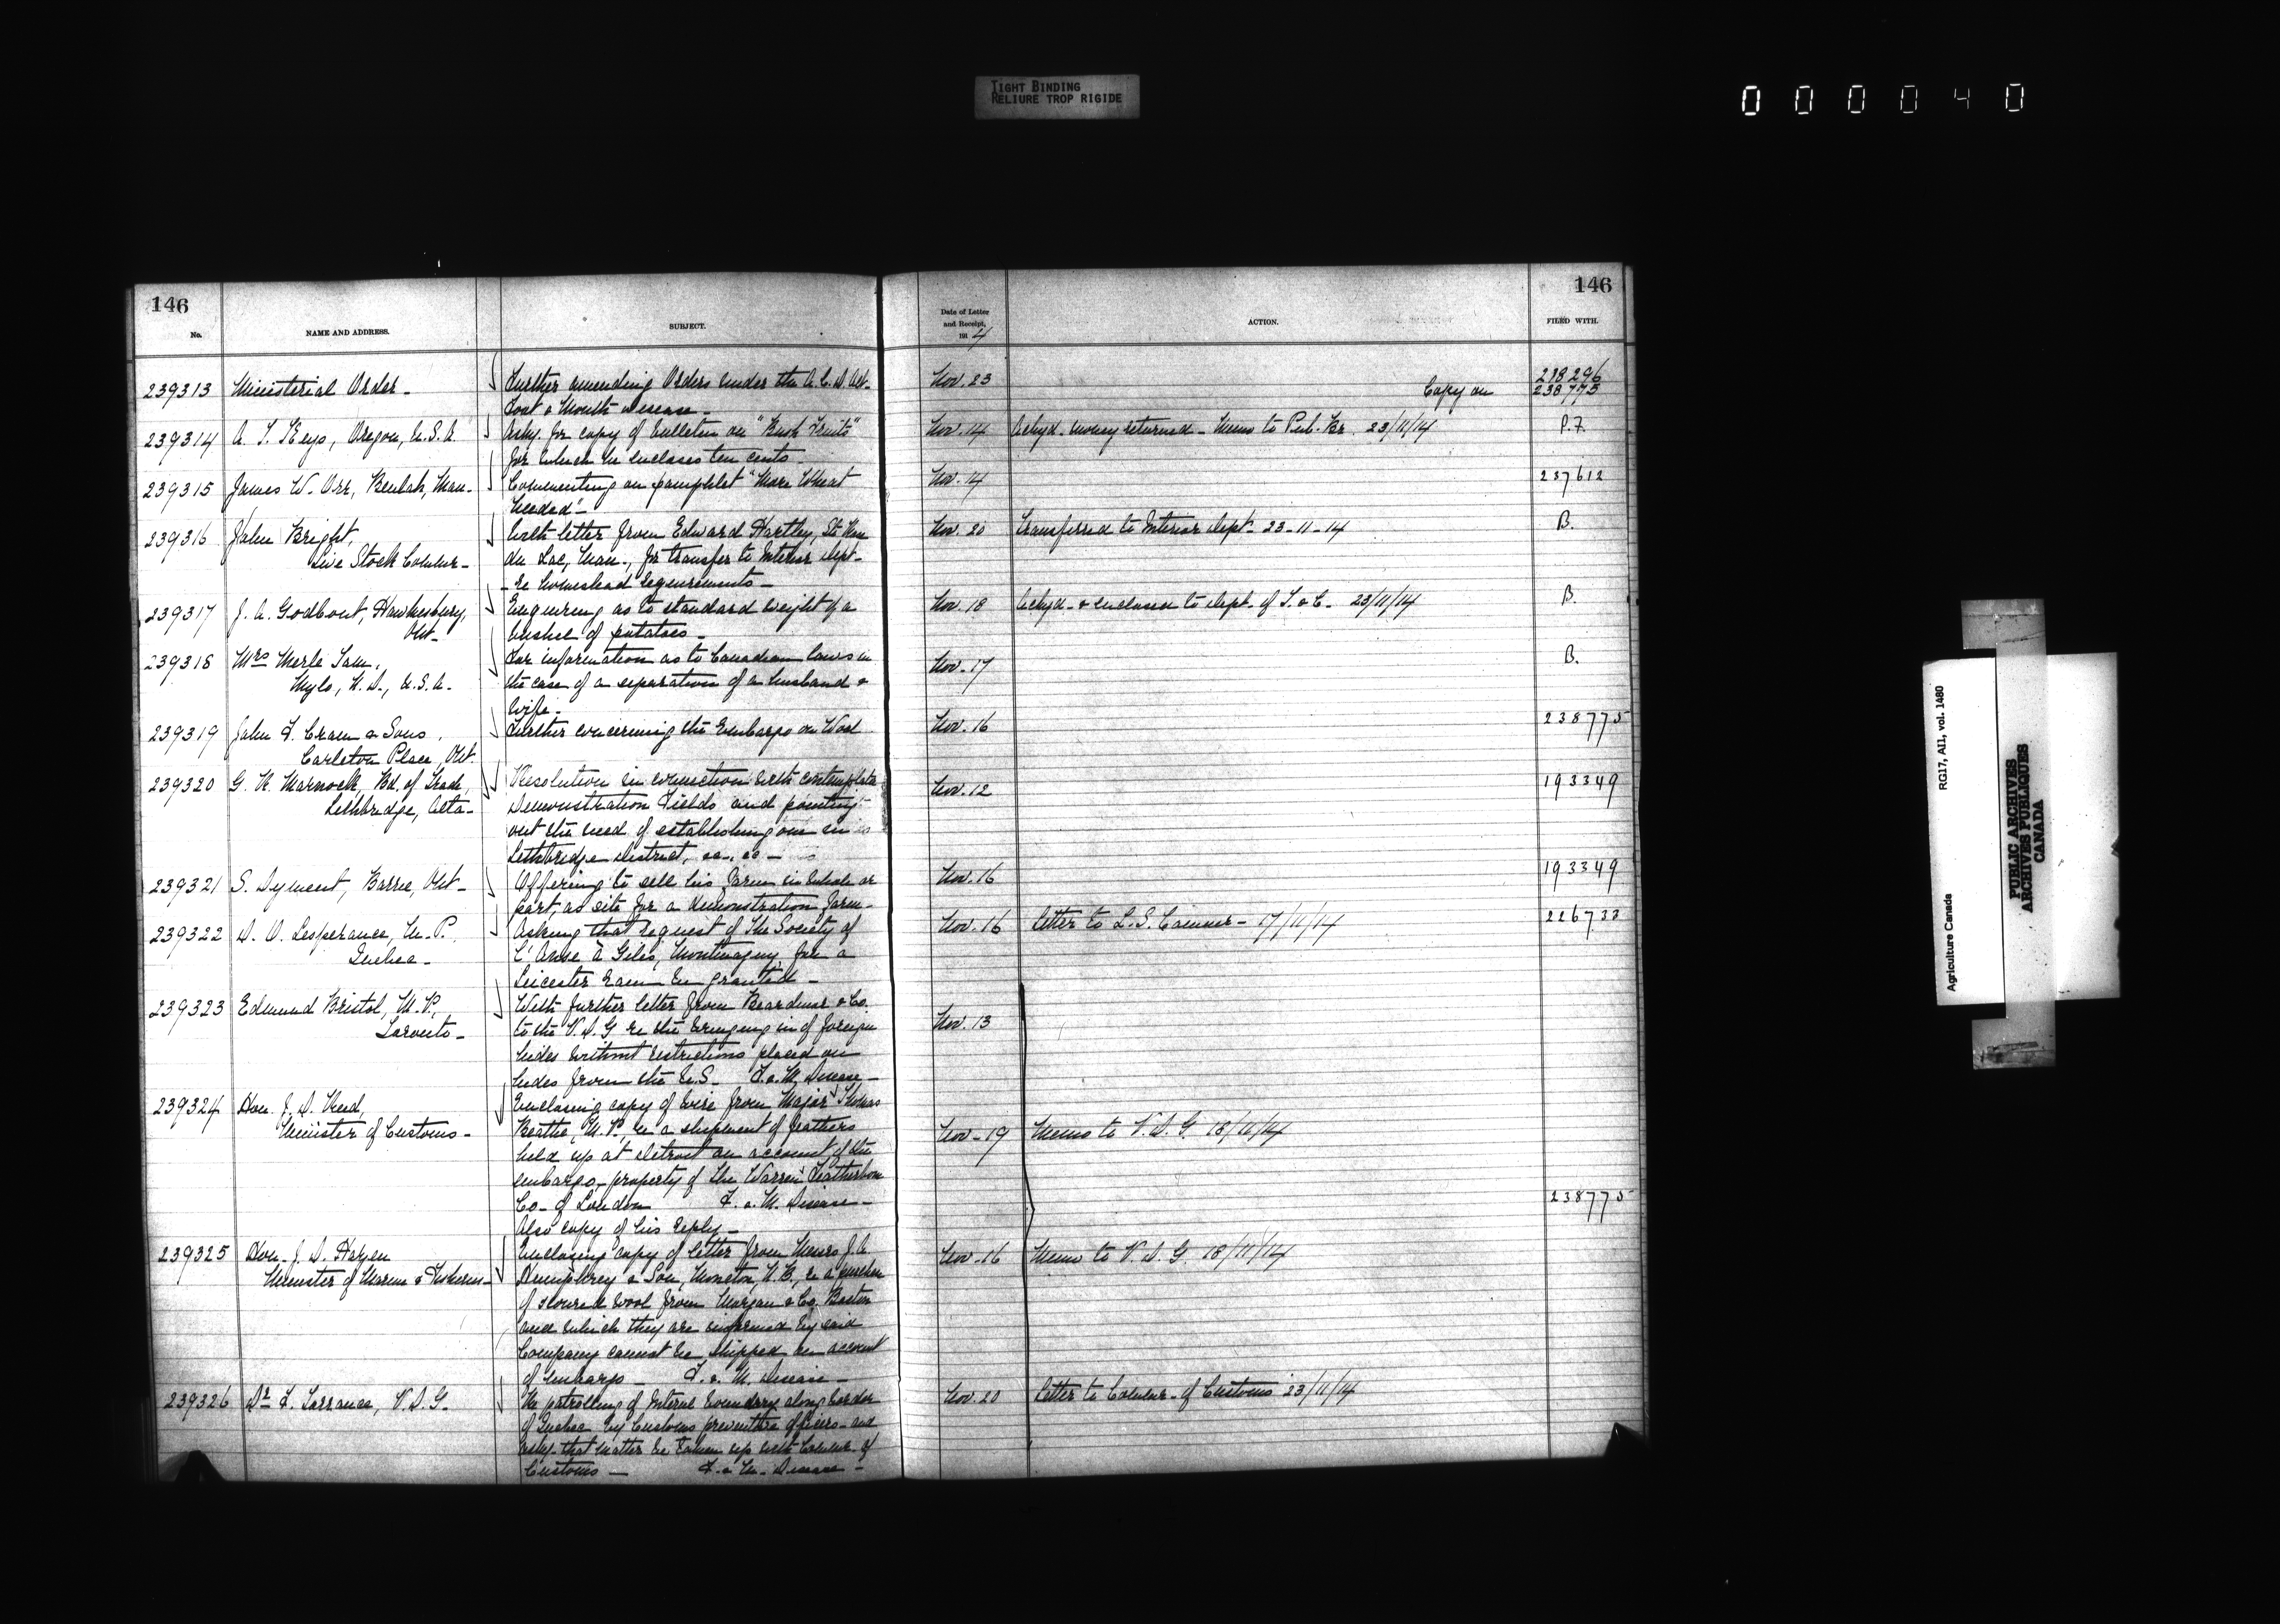 TIGHT BINDING
RELIURE TROP RIGIDE
000040
146
No.
NAME AND ADDRESS.
SUBJECT.
Date of Letter
and Receipt,
191 4
ACTION.
146
FILED WITH.
239313 Ministerial Order - Further amending Orders under the A. C. D. Act - Nov. 23 238296
Foot & Mouth Disease - Copy on 238775
239314 A. T. Keys, Oregon, U.S.A. Askg. for copy of bulletin on "Bush Fruits" Nov. 14 Ackgd. money returned - Memo to Pub. Br. 23/11/14 P.F.
for which he encloses ten cents -
239315 James W. Orr, Beulah, Man. Commenting on pamphlet "More Wheat Nov. 14 237612
Needed" -
239316 John Bright, With letter from Edward Hartley, Ste Rose Nov. 20 Transferred to Interior Dept - 23-11-14 B.
Live Stock Commr - du Lac, Man., for transfer to Interior Dept -
re homestead requirements -
239317 J. A. Godbout, Hawkesbury, Enquiring as to standard weight of a Nov. 18 Ackgd. & enclosed to Dept. of T. & C. 23/11/14 B.
Ont - bushel of potatoes -
239318 Mrs Merle Sam, For information as to Canadian laws in Nov. 17 B.
Mylo, N. D., U.S.A. the case of a separation of a husband &
wife -
239319 John F. Cram & Sons, Further concerning the Embargo on Wool Nov. 16 238775
Carleton Place, Ont.
239320 G. R. Marnoch, Bd. of Trade, Resolution in connection with contemplated Nov. 12 193349
Lethbridge, Alta - Demonstration Fields and pointing
out the need of establishing one in
Lethbridge district, &c., &c -
239321 S. Dyment, Barrie, Ont - Offering to sell his farm in whole or Nov. 16 193349
part, as site for a demonstration farm -
239322 D. O. Lesperance, M. P., Asking that request of The Society of Nov. 16 Letter to L. S. Commr - 17/11/14 226733
Quebec - L'Anse à Giles, Montmagny, for a
Leicester Ram be granted -
239323 Edmund Bristol, M. P., With further letter from Beardmore & Co.
Toronto - to the V. D. G re the bringing in of foreign Nov. 13
hides without restrictions placed on
hides from the U.S. F. & M. Disease -
239324 Hon. J. D. Reid, Enclosing copy of wire from Major Thomas
Minister of Customs - Beattie, M. P., re a shipment of feathers Nov - 19 Memo to V. D. G. 18/11/14
held up at Detroit on account of the
embargo - property of the Warren Featherbone
Co - of London F. & M. Disease - 238775
Also copy of his reply -
239325 Hon. J. D. Hazen Enclosing copy of letter from Messrs J. A. Nov. 16 Memo to V. D. G. 18/11/14
Minister of Marine & Fisheries - Humphrey & Son, Moncton, N. B., re a purchase
of scoured wool from Morgan & Co. Boston
and which they are informed by said
Company cannot be shipped on account
of embargo - F. & M. Disease -
239326 Dr F. Torrance, V. D. G. Re patrolling of Internl boundary along border Nov. 20 Letter to Commr - of Customs 23/11/14
of Quebec by Customs preventive officers - and
askg. that matter be taken up with Commr - of
Customs - F. & M. Disease -
Agriculture Canada
RG17, AII, vol. 1480
PUBLIC ARCHIVES
ARCHIVES PUBLIQUES
CANADA